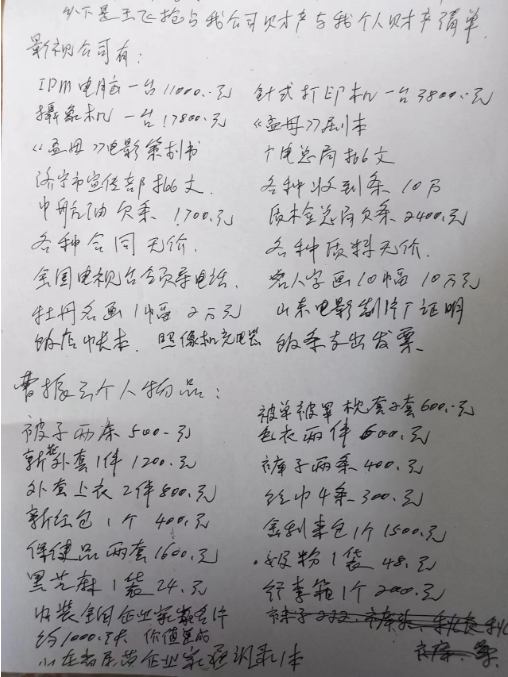 以下是王飞抢与我公司财产与我个人财产清单.
影视公司有:
IPM电脑一台11000.-元 针式打印机一台3800.-元
摄象机 一台17800元 《孟母》剧本
《孟母》电影策划书 广电总局批文
济宁市宣传部批文. 各种收到条 10万
中航油欠条 1700.元 质朴金总局欠条 2400.元
各种合同无价. 各种资料无价.
全国电视台台领导电话. 名人字画10幅 10万元
牡丹名画1幅 2万元 山东电影制片厂证明
饭店帐本. 照像机充电器 饭条支出发票.
曹振云个人物品:
被单被罩枕套子套600.-元
被子两床 500-元 毛衣两件 600.元
新外套1件 1200.元 裤子两条 400.元
外套上衣2件 800.元 丝巾4条 300.元
新红包 1个 400.元 金利来包1个 1500.元
保健品两套 1600.元 奶粉 1袋 48.元
黑芝麻 1袋 24.元 行李箱1个 200.元
内装全国企业家名片
约1000张 价值
企业家通讯录1本